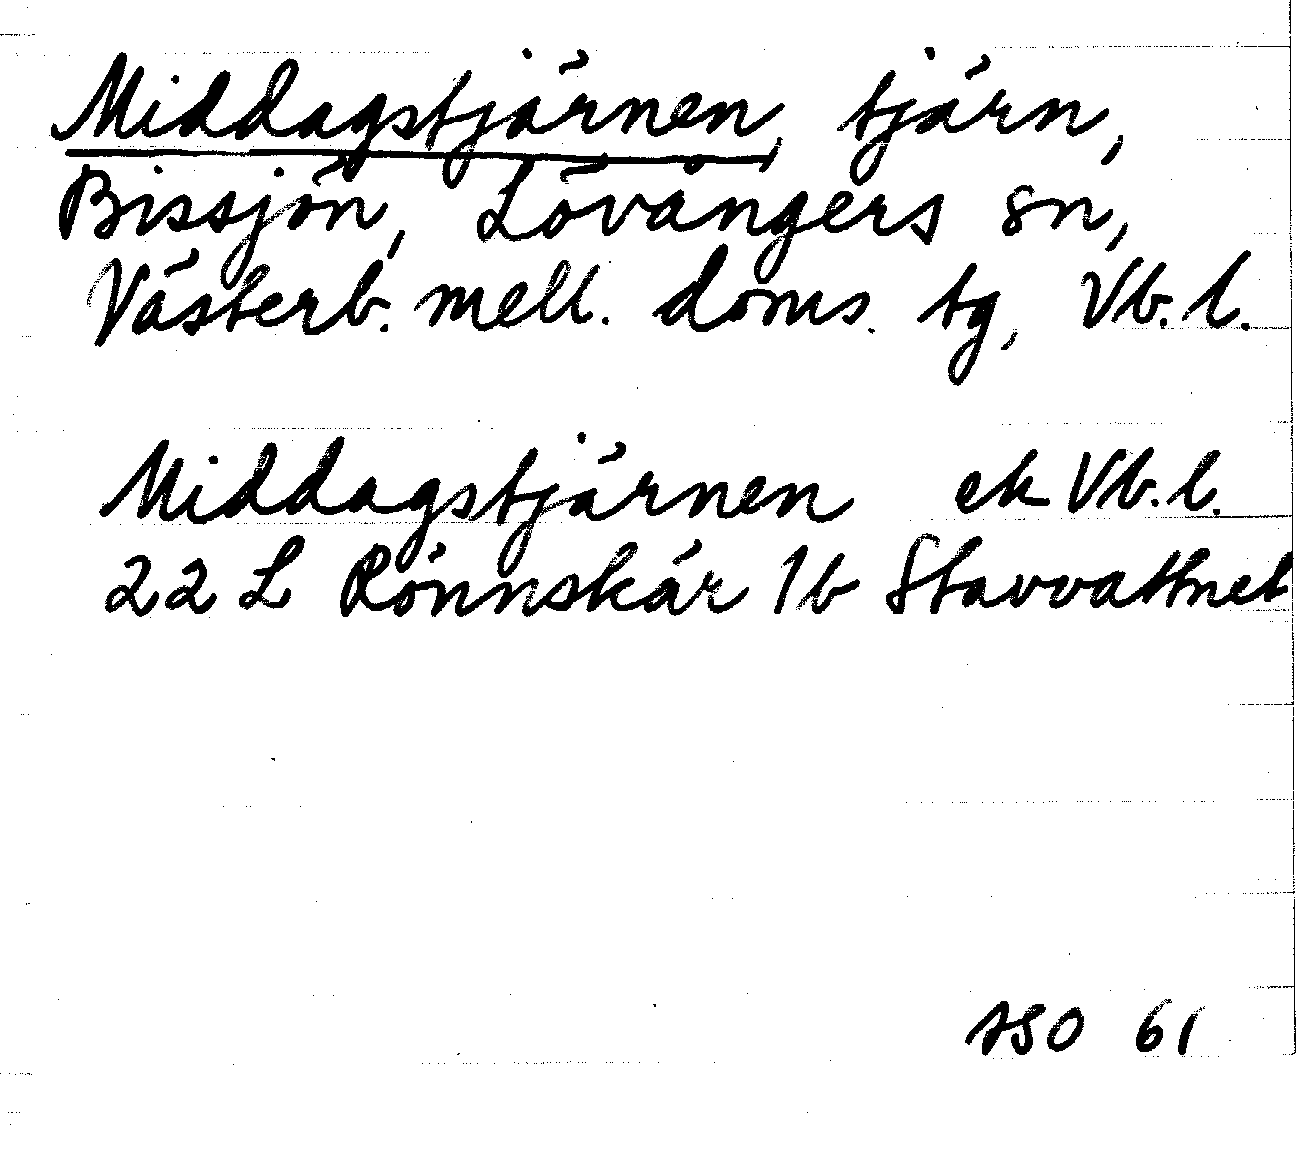 Middagstjärnen, tjärn,
Bissjön, Lövångers sn,
Västerb. mell. doms. tg, Vb. l.
Middagstjärnen ek Vb. l.
22 L Rönnskär 1b Stavvattnet
ASO 61